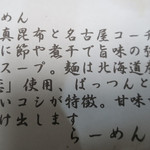 真昆布と名古屋コーチ
に節や煮干で旨味の強
スープ。麺は北海道産
』使用、ぱっつんと
いコシが特徴。甘味
け出します
らーめん